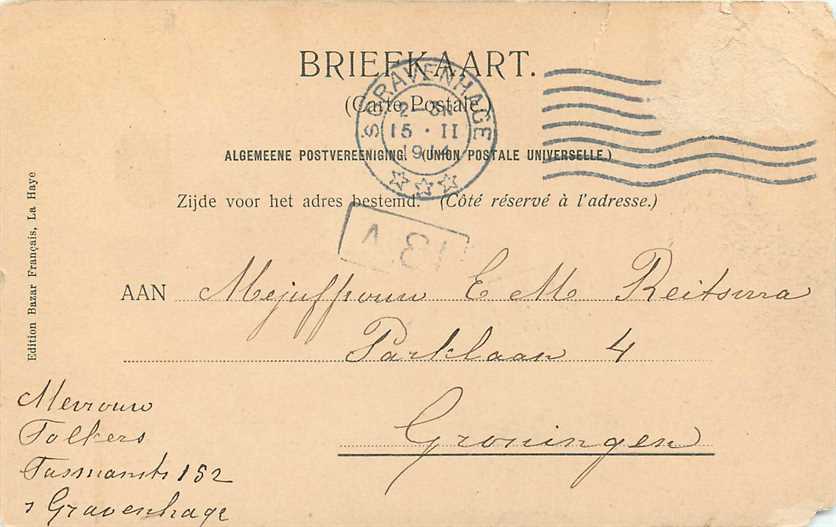 BRIEFKAART.
(Carte Postale.)
S GRAVENHAGE
2 - 3N
15 · II
1914
ALGEMEENE POSTVEREENIGING. (UNION POSTALE UNIVERSELLE.)
Zijde voor het adres bestemd. (Côté réservé à l'adresse.)
AAN Mejuffrouw E M Reitsma
Parklaan 4
Groningen
Mevrouw
Folkers
Tasmanstr 152
s Gravenhage
Edition Bazar Français, La Haye